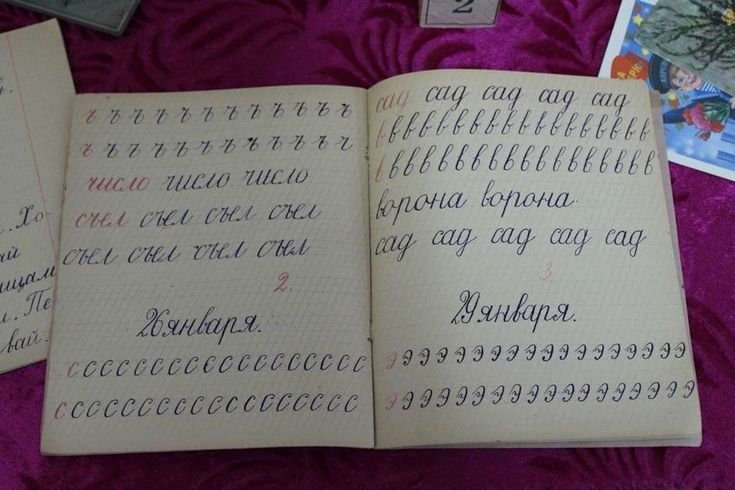 ъ ъ ъ ъ ъ ъ ъ ъ ъ ъ ъ ъ
ъ ъ ъ ъ ъ ъ ъ ъ ъ ъ ъ ъ
число число число
съел съел съел съел
съел съел съел съел
2.
26 января.
с с с с с с с с с с с с с с с с с с
с с с с с с с с с с с с с с с с с с
сад сад сад сад сад
в в в в в в в в в в в в в в в в в
в в в в в в в в в в в в в в в в в
ворона ворона.
сад сад сад сад сад
3.
29 января.
Э Э Э Э Э Э Э Э Э Э Э Э Э Э Э Э Э Э
Э Э Э Э Э Э Э Э Э Э Э Э Э Э Э Э Э Э
. Хо-
ай
ицам
. Пе
вай.
2